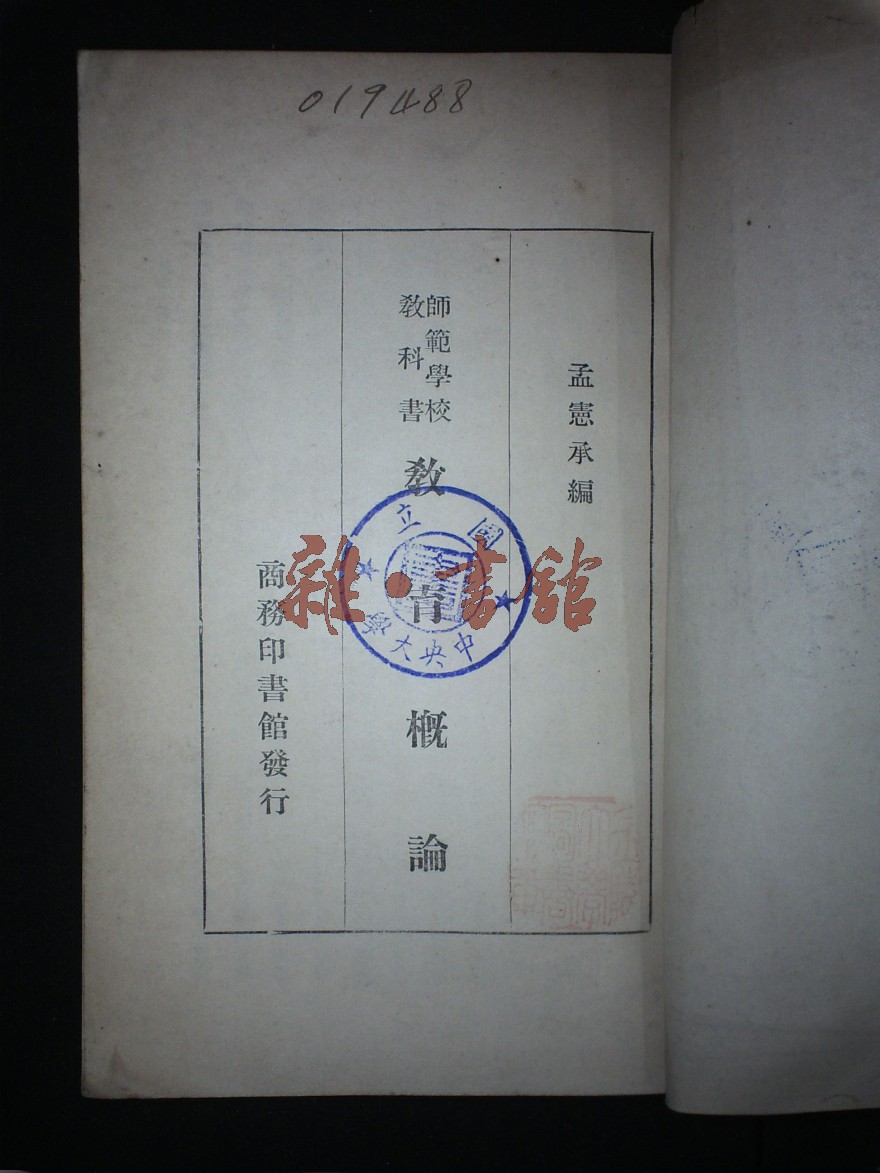 019488
孟憲承編
師範學校
教科書
教育概論
商務印書館發行
國立
中央大學
雜·書館